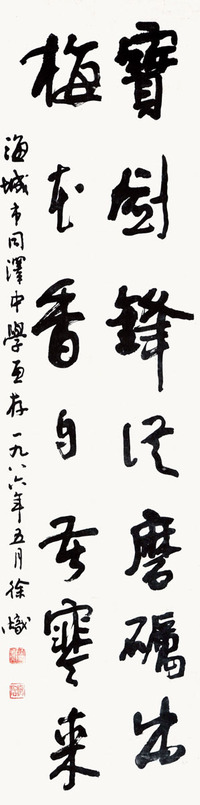 寶劍鋒從磨礪出
梅花香自苦寒来
海城市同澤中學惠存 一九八六年五月 徐熾